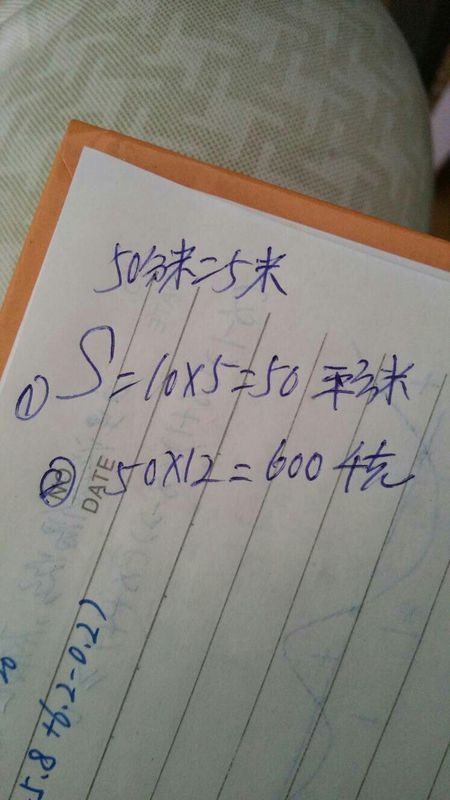 50分米=5米
① S=10×5=50平方米
② 50×12=600千克
NO
DATE
5.8+(6.2-0.2)